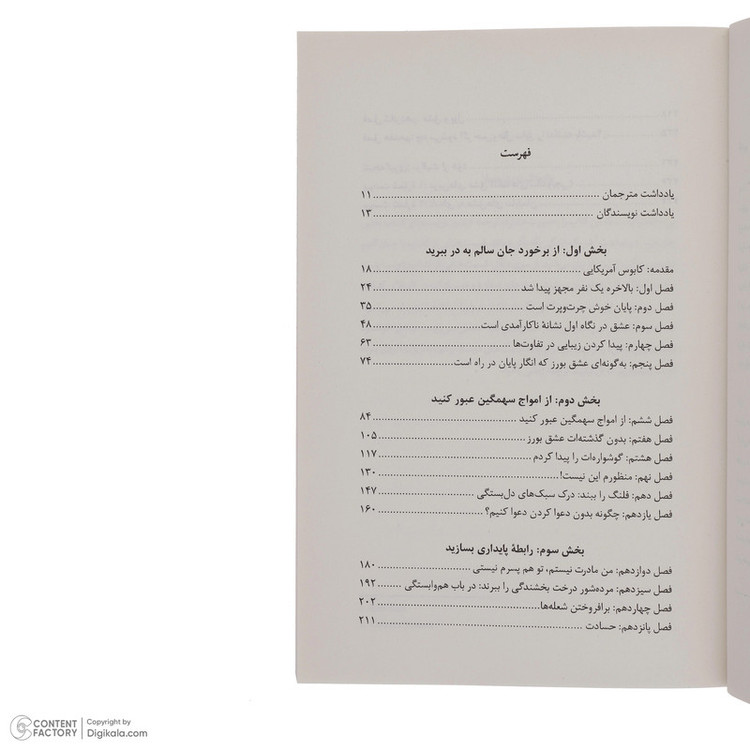 فهرست
یادداشت مترجمان ........................................ ۱۱
یادداشت نویسندگان ........................................ ۱۳
بخش اول: از برخورد جان سالم به در ببرید
مقدمه: کابوس آمریکایی ........................................ ۱۸
فصل اول: بالاخره یک نفر مجهز پیدا شد ........................................ ۲۴
فصل دوم: پایان خوش چرت‌وپرت است ........................................ ۳۵
فصل سوم: عشق در نگاه اول نشانهٔ ناکارآمدی است ........................................ ۴۸
فصل چهارم: پیدا کردن زیبایی در تفاوت‌ها ........................................ ۶۳
فصل پنجم: به‌گونه‌ای عشق بورز که انگار پایان در راه است ........................................ ۷۴
بخش دوم: از امواج سهمگین عبور کنید
فصل ششم: از امواج سهمگین عبور کنید ........................................ ۸۴
فصل هفتم: بدون گذشته‌ات عشق بورز ........................................ ۱۰۵
فصل هشتم: گوشواره‌ات را پیدا کردم ........................................ ۱۱۷
فصل نهم: منظورم این نیست! ........................................ ۱۳۰
فصل دهم: فلنگ را ببند: درک سبک‌های دل‌بستگی ........................................ ۱۴۷
فصل یازدهم: چگونه بدون دعوا کردن دعوا کنیم؟ ........................................ ۱۶۰
بخش سوم: رابطهٔ پایداری بسازید
فصل دوازدهم: من مادرت نیستم، تو هم پسرم نیستی ........................................ ۱۸۰
فصل سیزدهم: مرده‌شور درخت بخشندگی را ببرند: در باب هم‌وابستگی ........ ۱۹۲
فصل چهاردهم: برافروختن شعله‌ها ........................................ ۲۰۲
فصل پانزدهم: حسادت ........................................ ۲۱۱
CONTENT FACTORY
Copyright by
Digikala.com